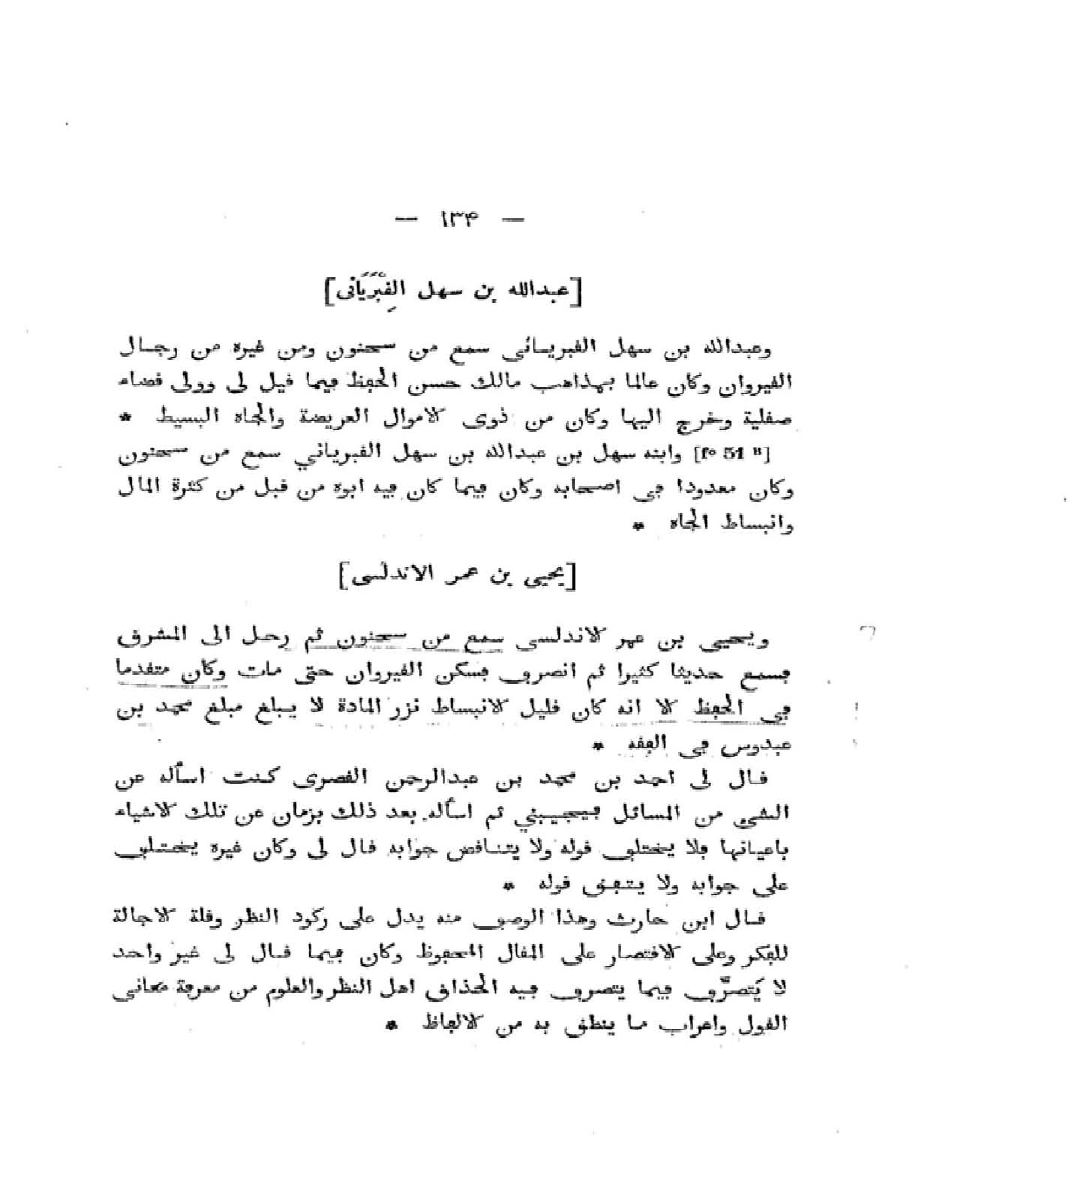 — ١٣۴ —
[عبدالله بن سهل القِبْرِيَانى]
وعبدالله بن سهل القبريانى سمع من سحنون ومن غيره من رجال
القيروان وكان عالما بمذاهب مالك حسن الحفظ فيما قيل لى وولى قضاء
صقلية وخرج اليها وكان من ذوى الاموال العريضة والجاه البسيط *
[fº 51 B] وابنه سهل بن عبدالله بن سهل القبرياني سمع من سحنون
وكان معدودا في اصحابه وكان فيما كان فيه ابوه من قبل من كثرة المال
وانبساط الجاه *
[يحيي بن عمر الاندلسى]
ويحيى بن عمر الاندلسى سمع من سحنون ثم رحل الى المشرق
فسمع حديثا كثيرا ثم انصرف فسكن القيروان حتى مات وكان متقدما
في الحفظ الا انه كان قليل الانبساط نزر المادة لا يبلغ مبلغ محمد بن
عبدوس في الفقه *
قال لى احمد بن محمد بن عبدالرحمن القصرى كنت اسأله عن
الشي من المسائل فيجيبني ثم اسأله بعد ذلك بزمان عن تلك الاشياء
باعيانها فلا يختلف قوله ولا يتناقض جوابه قال لى وكان غيره يختلف
على جوابه ولا يتفق قوله *
قال ابن حارث وهذا الوصف منه يدل على ركود النظر وقلة الاجالة
للفكر وعلى الاقتصار على المقال المحفوظ وكان فيما قال لى غير واحد
لا يَتصرَّف فيما يتصرف فيه الحذاق اهل النظر والعلوم من معرفة معانى
القول واعراب ما ينطق به من الالفاظ *